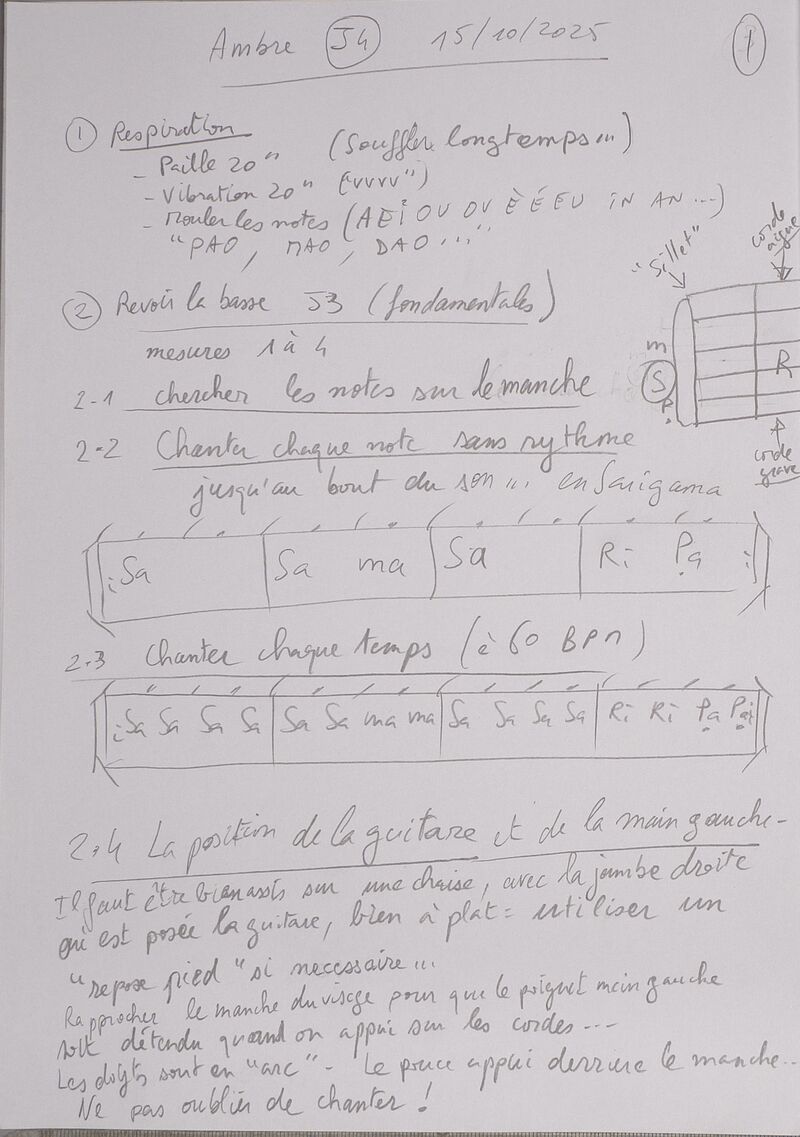 Ambre J4 15/10/2025
1
① Respiration
- Paille 20" (Souffler longtemps...)
- Vibration 20" ("vvvv")
- Mouler les notes (A E i OU OU È É EU IN AN ...)
"PAO, MAO, DAO..."
② Revoir la basse J3 (fondamentales)
mesures 1 à 4
2-1 chercher les notes sur le manche
"Sillet"
corde aigue
m
S
P
R
corde grave
2-2 Chanter chaque note sans rythme
jusqu'au bout du son... en Sarigama
Sa Sa ma Sa Ri Pa
2.3 Chanter chaque temps (à 60 BPM)
Sa Sa Sa Sa Sa Sa ma ma Sa Sa Sa Sa Ri Ri Pa Pa
2.4 La position de la guitare et de la main gauche-
Il faut être bien assis sur une chaise, avec la jambe droite
qui est posée la guitare, bien à plat = utiliser un
"repose pied" si necessaire...
Rapprocher le manche du visage pour que le poignet main gauche
soit détendu quand on appui sur les cordes...
Les doigts sont en "arc" - Le pouce appui derriere le manche...
Ne pas oublier de chanter !